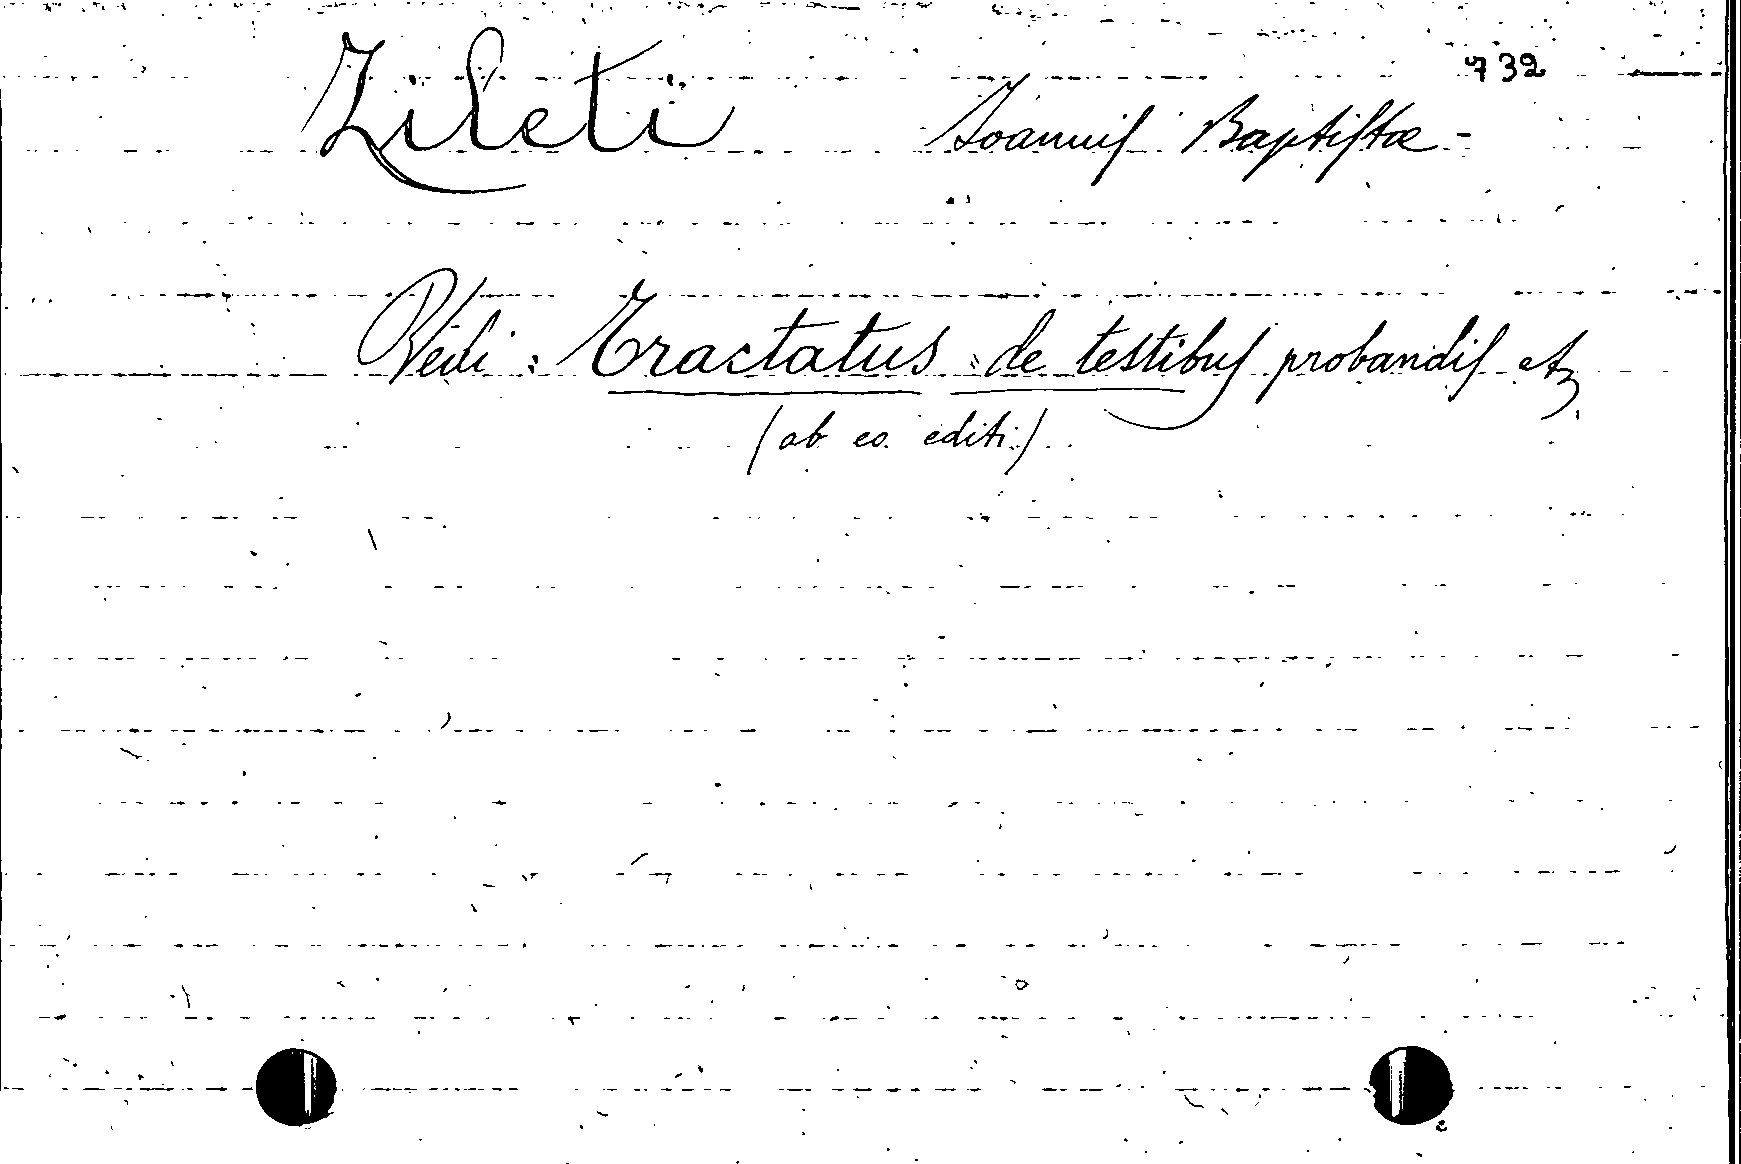 732
Zileti Joannis Baptistæ -
Vedi : Tractatus de testibus probandis etc.
(ab eo editi)